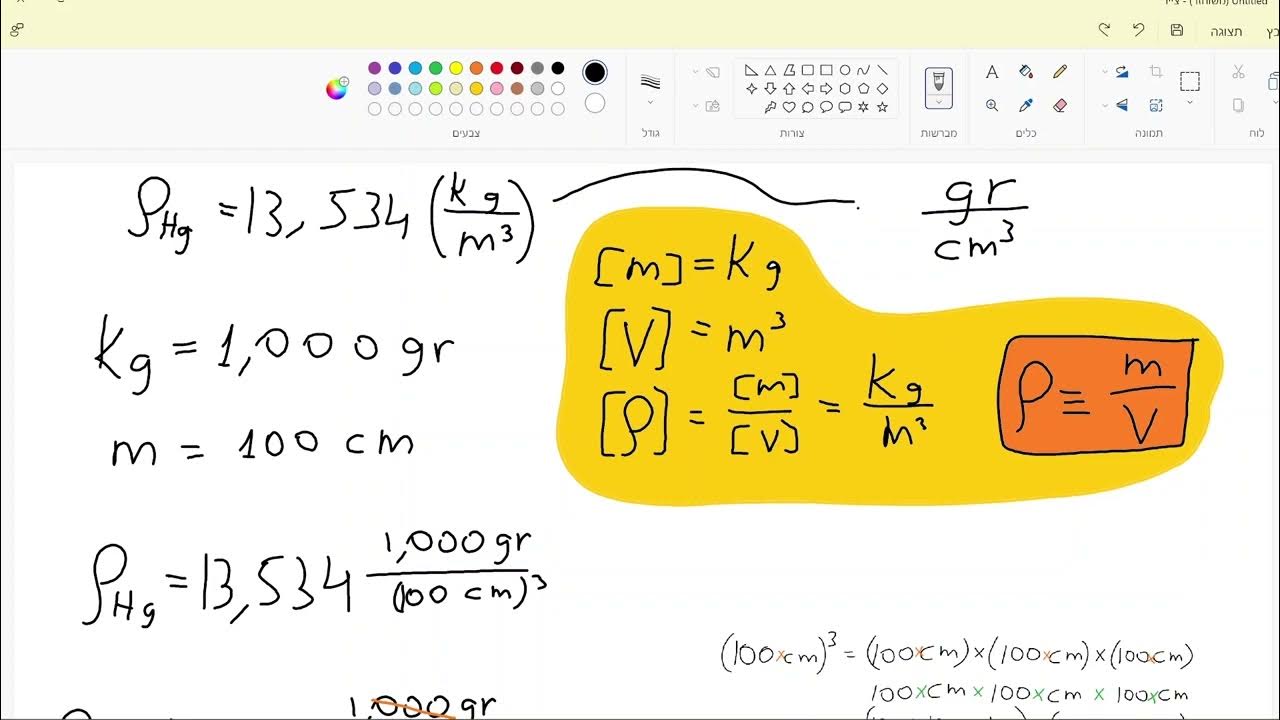 Untitled (משוחזר) - צייר
תצוגה
צבעים
גודל
צורות
מברשות
כלים
תמונה
לוח
ρHg = 13,534 (kg/m³)
gr/cm³
[m] = Kg
[V] = m³
[ρ] = [m]/[V] = Kg/m³
ρ ≡ m/V
Kg = 1,000 gr
m = 100 cm
ρHg = 13,534 1,000 gr/(100 cm)³
(100×cm)³ = (100×cm)×(100×cm)×(100×cm)
100×cm × 100×cm × 100×cm
1,000 gr